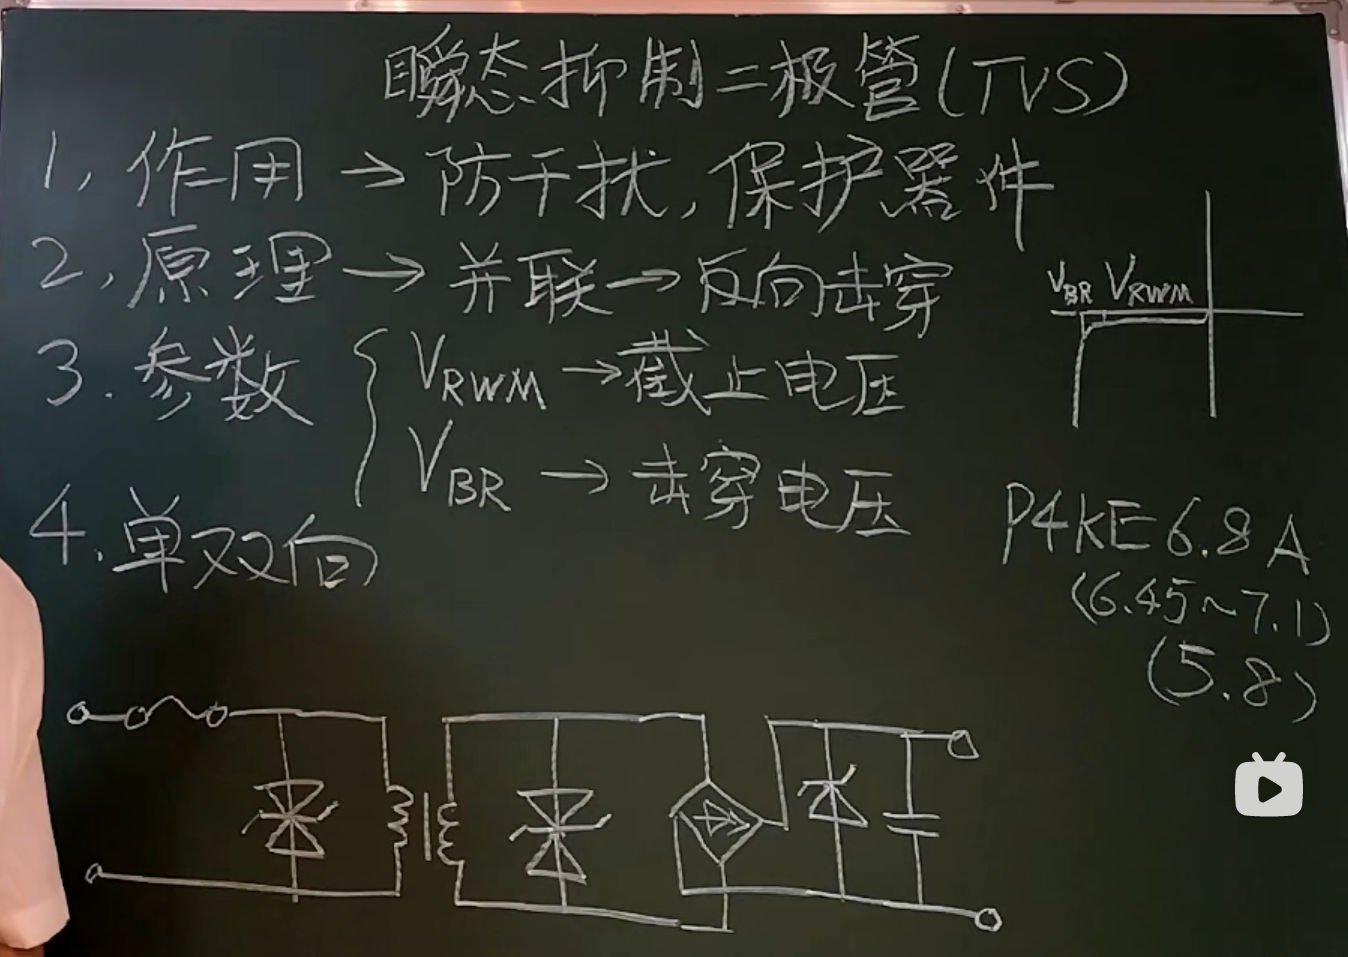 瞬态抑制二极管(TVS)
1,作用→防干扰,保护器件
2,原理→并联→反向击穿
VBR VRWM
3.参数 { VRWM→截止电压
VBR→击穿电压
4.单双向
P4KE6.8A
(6.45~7.1)
(5.8)